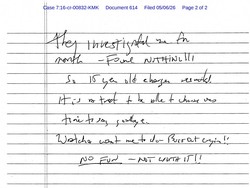 Case 7:16-cr-00832-KMK Document 614 Filed 05/06/26 Page 2 of 2
They investigated me for
month - Found NOTHING!!!
So 15 year old charges
It is a treat to be able to choose one's
time to say goodbye.
Watcha want me to do - Burst out cryin!!
NO FUN - NOT WORTH IT!!